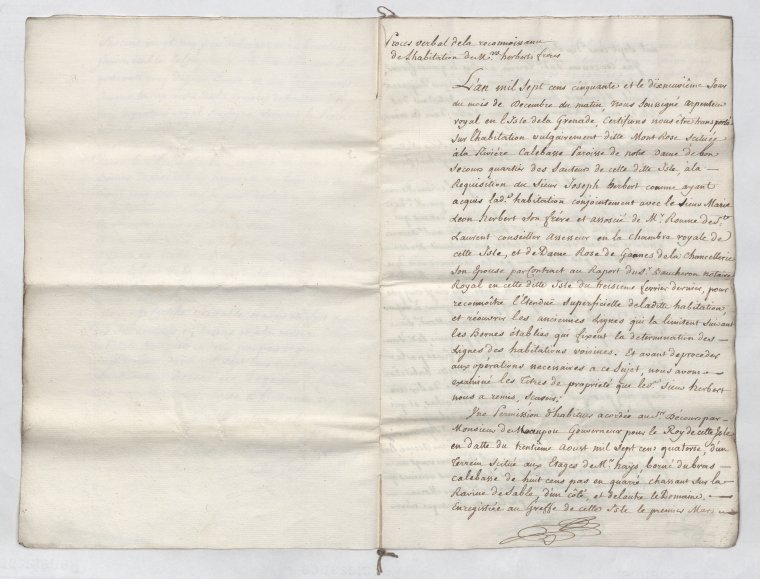 Procés verbal de la reconnoissance
de l'habitation de M.rs herbert freres
L'an mil sept cens cinquante et le dixneuviéme Jour
du mois de Decembre du matin, nous soussigné arpenteur
royal en l'Isle de la Grenade, Certifions nous être transporté
sur l'habitation vulgairement ditte Mont Rose scituée
à la Riviére Calebasse Paroisse de notre dame de bon
secours quartier des sauteurs de cette ditte Isle, à la
Requisition du Sieur Joseph herbert comme ayant
acquis lad.e habitation conjointement avec le Sieur Marie
Leon herbert son frére et associé de M.r Roume de S.t
Laurent conseiller assesseur en la chambre royale de
cette Isle, et de Dame Rose de Gannes de la Chancellerie
son Epouse par Contract au Raport du S.r Vaucheron notaire
Royal en cette ditte Isle du treiziéme fevrier dernier, pour
reconnoître l'Etenduë superficielle de laditte habitation
et réouvrir les anciennes Lignes qui la limitent suivant
les Bornes établies qui fixent la determination des
Lignes des habitations voisines. Et avant de proceder
aux opérations necessaires a ce sujet, nous avons
examiné les titres de propriété que led. Sieur herbert
nous a remis, sçavoir.
Une Permission d'habituer acordée au S.r Décours par
Monsieur de Maupou Gouverneur pour le Roy de cette Isle
en datte du trentiéme Aoust mil sept cens quatorze, d'un
terrein scitué aux Etages de M.r hays, borné du bras
calebasse de huit cens pas en quarré chassant sur la
Ravine de Sable, d'un côté, et de l'autre le Domaine.
Enregistrée au Greffe de cette Isle le premier Mars